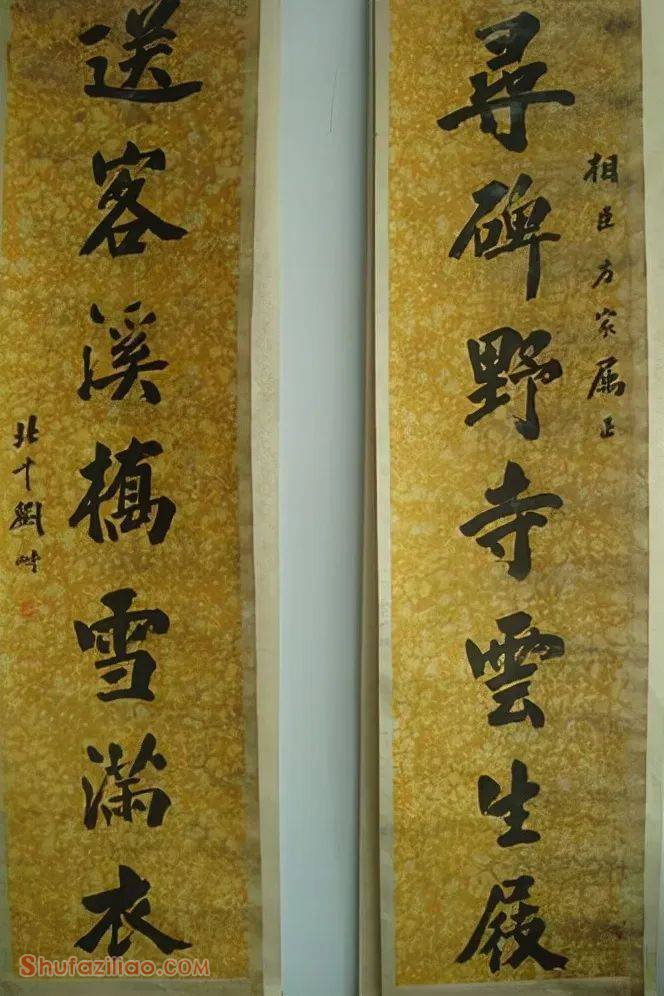 尋碑野寺雲生屐
相臣方家属正
送客溪橋雪滿衣
北 劉
Shufaziliao.com